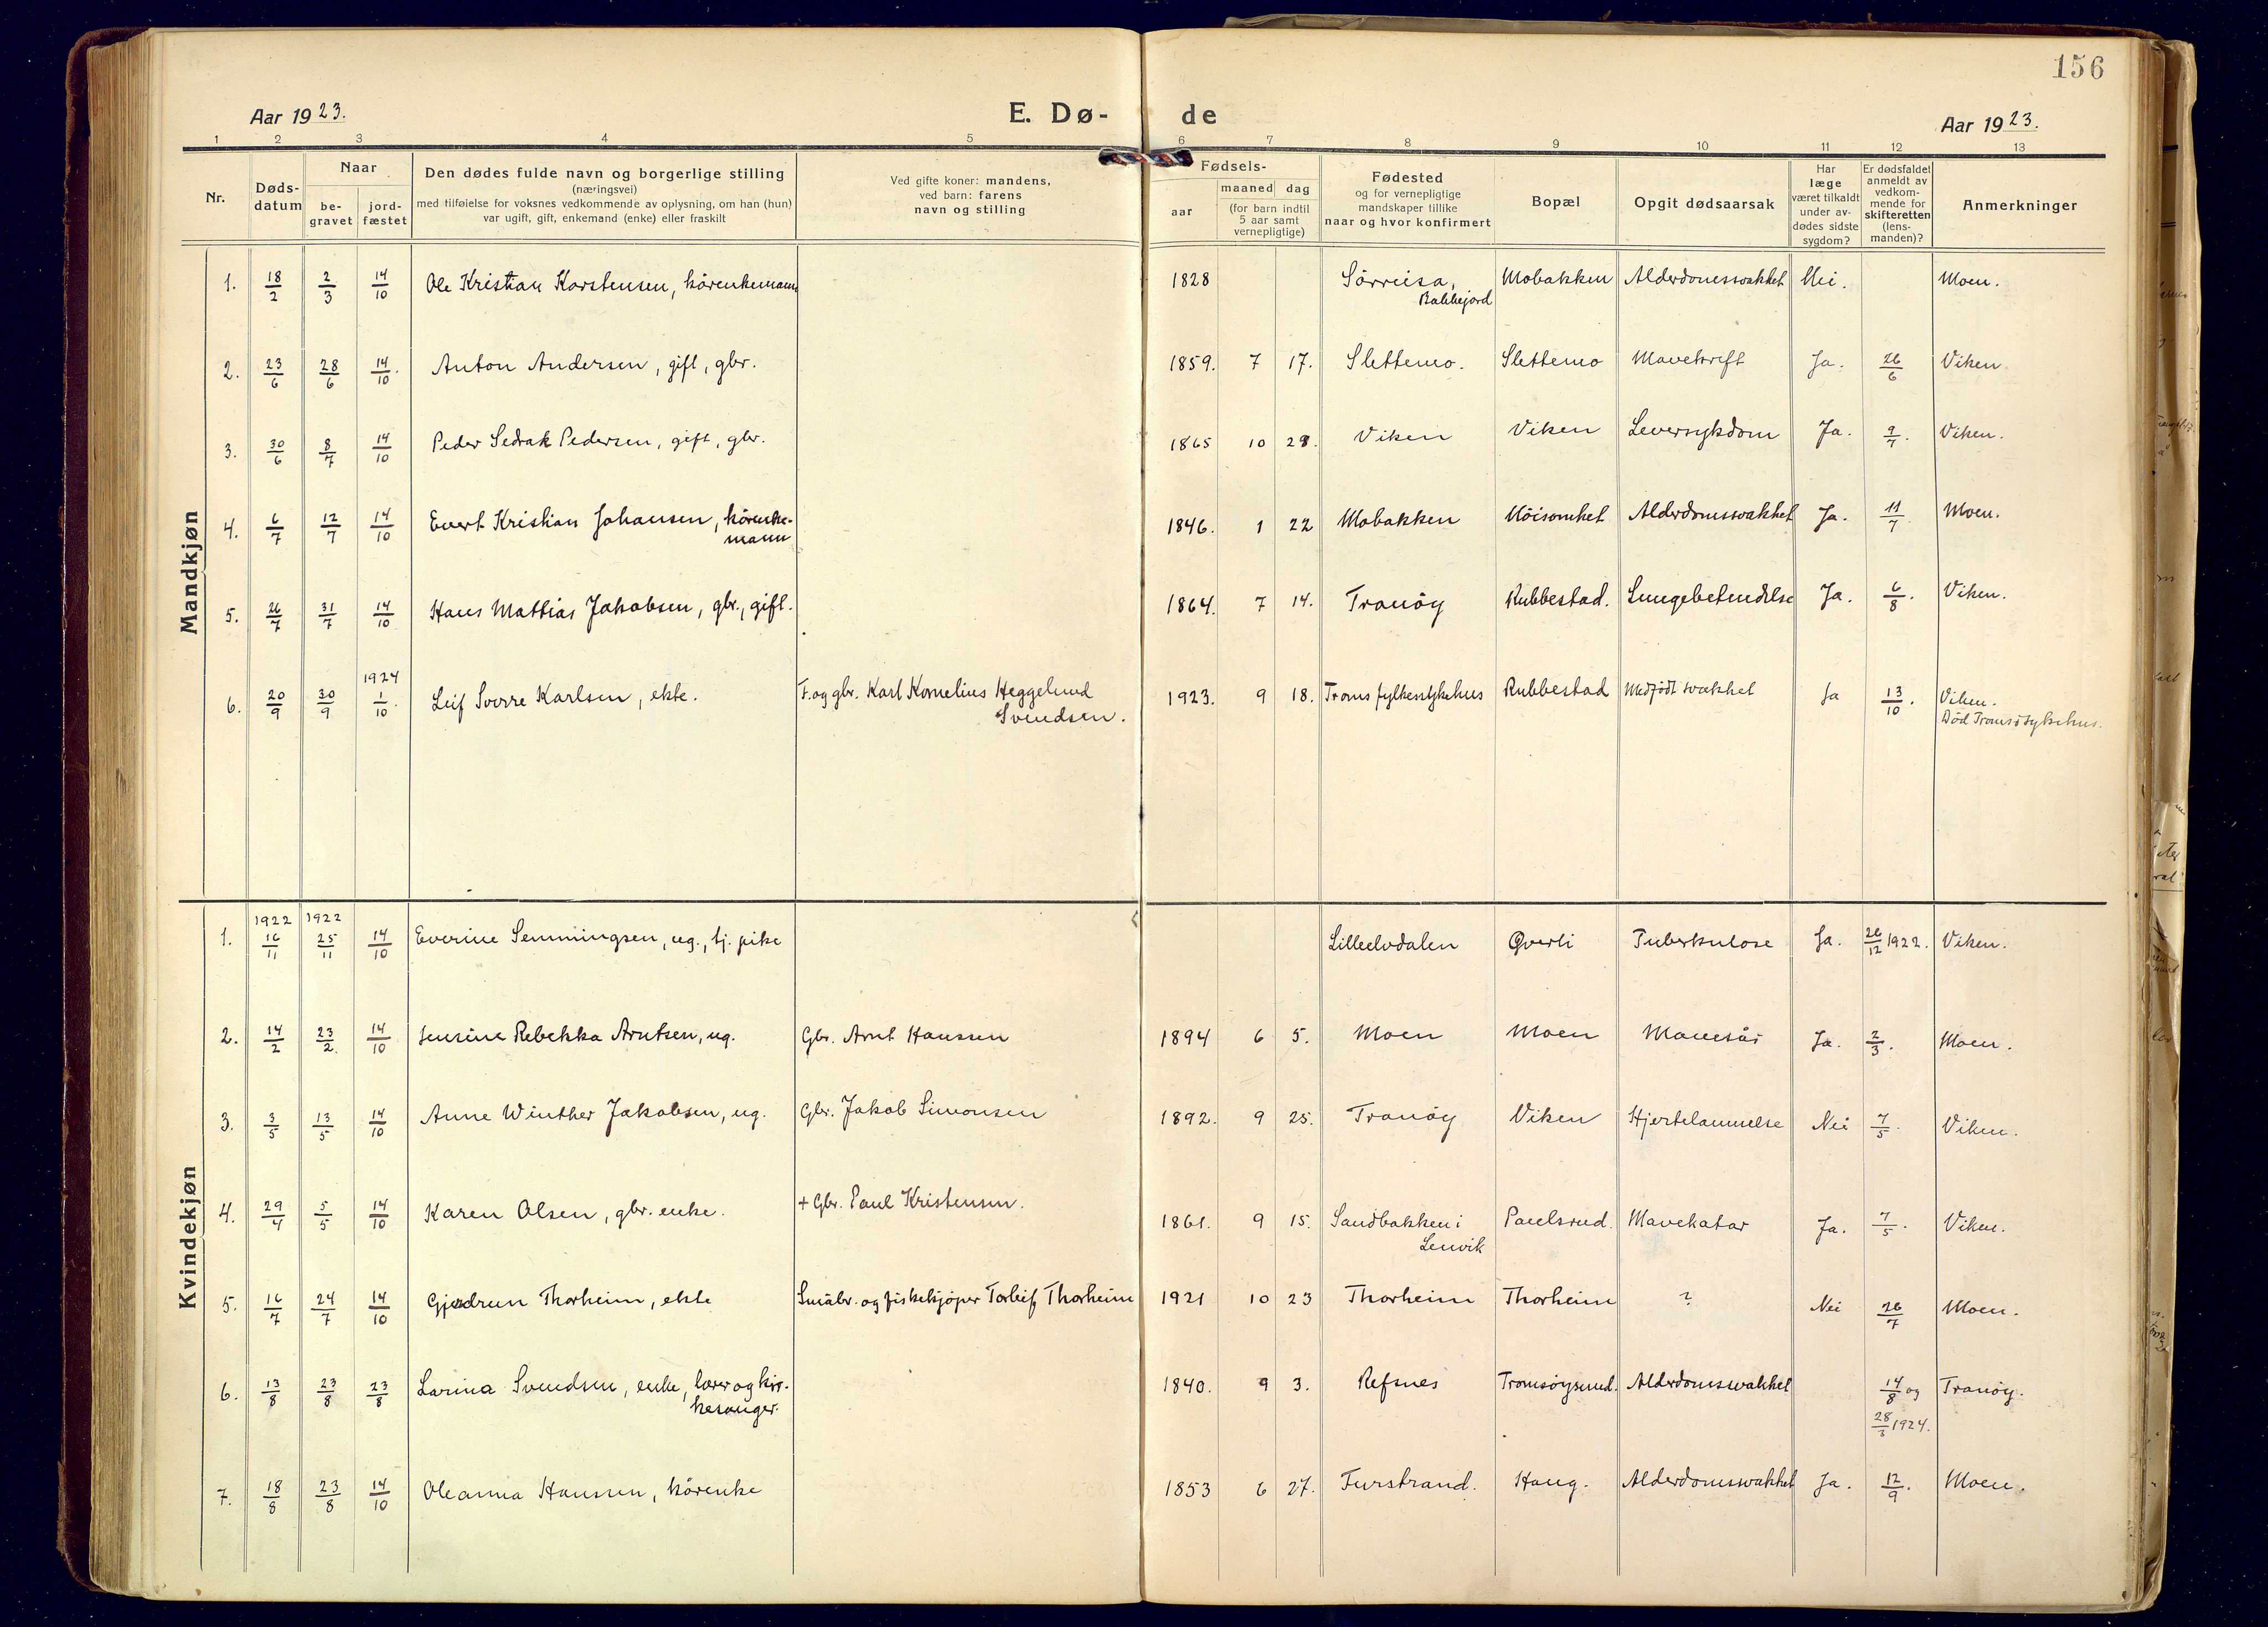 156
Aar 1923.
E. Dø-
de
Aar 1923.
1 2 3 4 5 6 7 8 9 10 11 12 13
Nr.
Døds-
datum
Naar
be-
gravet
jord-
fæstet
Den dødes fulde navn og borgerlige stilling
(næringsvei)
med tilføielse for voksnes vedkommende av oplysning, om han (hun)
var ugift, gift, enkemand (enke) eller fraskilt
Ved gifte koner: mandens,
ved barn: farens
navn og stilling
Fødsels-
aar
maaned dag
(for barn indtil
5 aar samt
vernepligtige)
Fødested
og for vernepligtige
mandskaper tillike
naar og hvor konfirmert
Bopæl
Opgit dødsaarsak
Har
læge
været tilkaldt
under av-
dødes sidste
sygdom?
Er dødsfaldet
anmeldt av
vedkom-
mende for
skifteretten
(lens-
manden)?
Anmerkninger
Mandkjøn
1. 18/2 2/3 14/10 Ole Kristian Karstensen, kårenkemann 1828 Sørreisa, Mobakken Alderdomssvakhet Nei. Moen.
Bakkejord
2. 23/6 28/6 14/10. Anton Andersen, gift, gbr. 1859. 7 17. Slettemo. Slettemo Mavekreft Ja. 26/6 Viken.
3. 30/6 8/7 14/10 Peder Sedrak Pedersen, gift, gbr. 1865 10 29. Viken Viken Leversykdom Ja. 9/7. Viken.
4. 6/7 12/7 14/10 Evert Kristian Johansen, kårenke-
mann 1846. 1 22 Mobakken Nöisomhet Alderdomssvakhet Ja. 11/7 Moen.
5. 26/7 31/7 14/10 Hans Mattias Jakobsen, gbr., gift. 1864. 7 14. Tranöy Rubbestad. Lungebetendelse Ja. 6/8. Viken.
6. 20/9 30/9 1924 1/10. Leif Sverre Karlsen, ekte. F. og gbr. Karl Kornelius Heggelund
Svendsen. 1923. 9 18. Troms fylkessykehus Rubbestad Medfödt svakhet Ja 13/10. Viken.
Död Tromsö sykehus.
Kvindekjøn
1. 1922 16/11 1922 25/11 14/10 Everine Semmingsen, ug., tj. pike Lilleelvdalen Överli Tuberkulose Ja. 26/12 1922. Viken.
2. 14/2 23/2 14/10 Jensine Rebekka Arntsen, ug. Gbr. Arnt Hanssen 1894 6 5. Moen Moen Mavesår Ja. 2/3. Moen.
3. 3/5 13/5 14/10 Anne Winther Jakobsen, ug. Gbr. Jakob Simonsen 1892. 9 25. Tranöy Viken Hjertelammelse Nei 7/5. Viken.
4. 29/4 5/5 14/10 Karen Olsen, gbr. enke. + Gbr. Paul Kristensen. 1861. 9 15. Sandbakken i Paulsrud. Mavekatar Ja. 7/5. Viken.
Lenvik
5. 16/7 24/7 14/10 Gjødrun Thorheim, ekte Småbr. og fiskekjøper Torleif Thorheim 1921 10 23 Thorheim Thorheim ? Nei 26/7 Moen.
6. 13/8 23/8 23/8 Larina Svendsen, enke, lærer og kir-
kesanger. 1840. 9 3. Refsnes Tromsöysund. Alderdomssvakhet 14/8 og Tranöy.
28/3 1924.
7. 18/8 23/8 14/10 Oleanna Hanssen, kårenke 1853 6 27. Furstrand. Haug. Alderdomssvakhet Ja. 12/9. Moen.